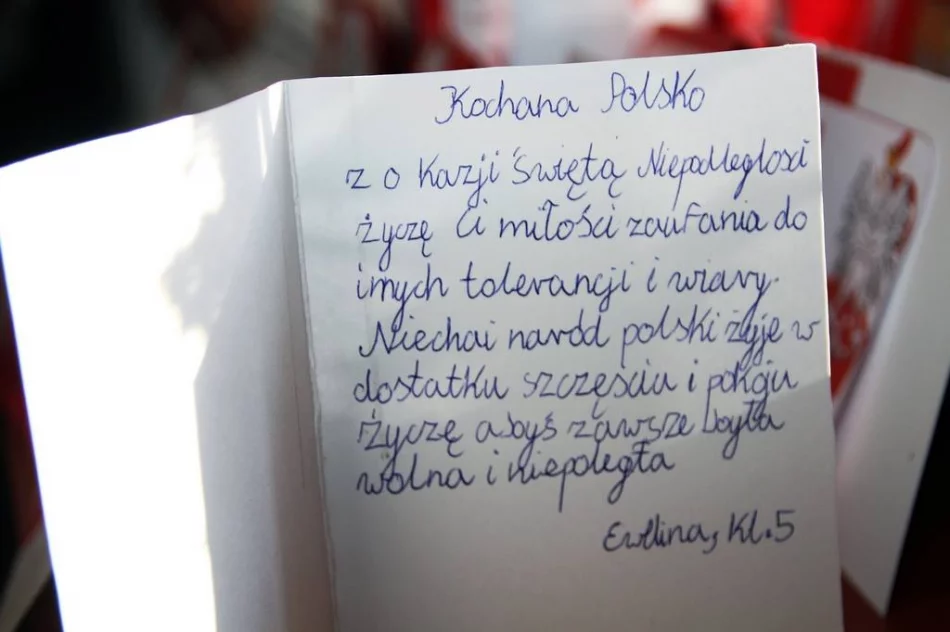 Kochana Polsko
z o kazji Świętą Niepodległosci
życzę Ci miłości zaufania do
imych tolerancji i wiary.
Niechai naród polski żyje w
dostatku szczęsciu i pokoju
życzę abyś zawsze była
wolna i niepoległa
Ewelina, Kl.5